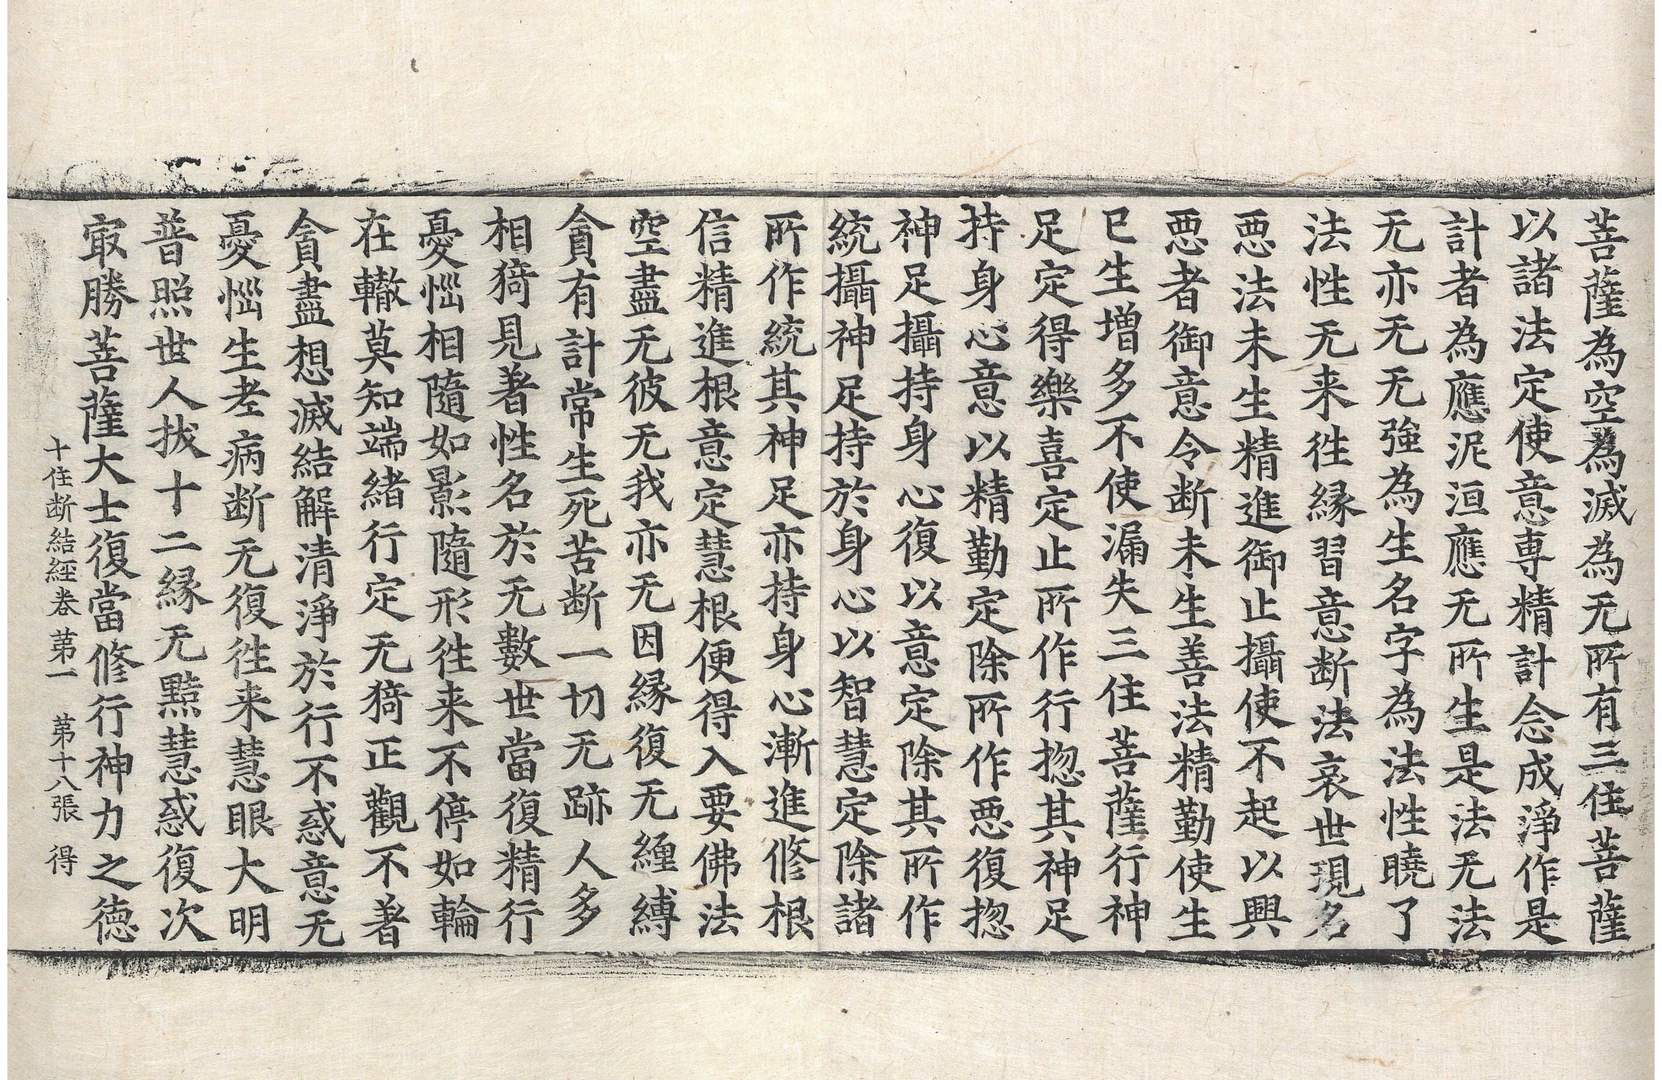 菩薩為空為滅為无所有三住菩薩
以諸法定使意専精計念成淨作是
計者為應泥洹應无所生是法无法
无亦无无強為生名字為法性曉了
法性无来徃縁習意断法哀世現名
惡法未生精進御止攝使不起以興
惡者御意令断未生善法精勤使生
已生增多不使漏失三住菩薩行神
足定得樂喜定止所作行惚其神足
持身心意以精勤定除所作惡復惚
神足攝持身心復以意定除其所作
統攝神足持於身心以智慧定除諸
所作統其神足亦持身心漸進修根
信精進根意定慧根便得入要佛法
空盡无彼无我亦无因縁復无纏縛
貪有計常生死苦断一切无跡人多
相猗見著性名於无數世當復精行
憂惱相隨如影隨形徃来不停如輪
在轍莫知端緒行定无猗正觀不著
貪盡想滅結解清淨於行不惑意无
憂惱生老病断无復徃来慧眼大明
普照世人拔十二縁无黠慧惑復次
㝡勝菩薩大士復當修行神力之德
十住断結經卷第一 第十八張 得